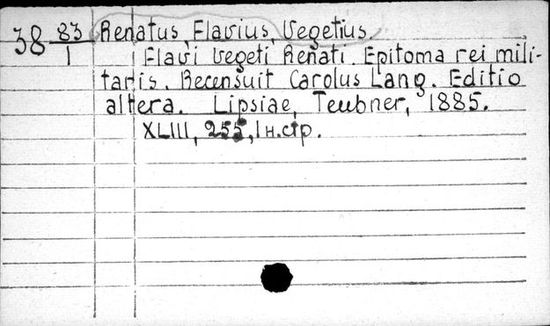 38 83/1 Renatus, Flavius, Vegetius
Flavi Vegeti Renati. Epitoma rei mili-
taris. Recensuit Carolus Lang. Editio
altera. Lipsiae, Teubner, 1885.
XLIII, 255, 1 н.стр.